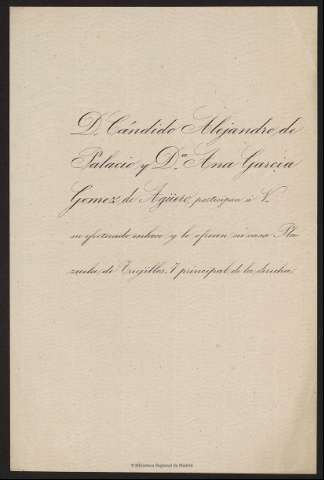 D. Cándido Alejandro de
Palacio y D.ª Ana García
Gomez de Agüero, participan á V.
su efectuado enlace y le ofrecen su casa Pla-
zuela de Trujillos, 7 principal de la derecha.
© Biblioteca Regional de Madrid